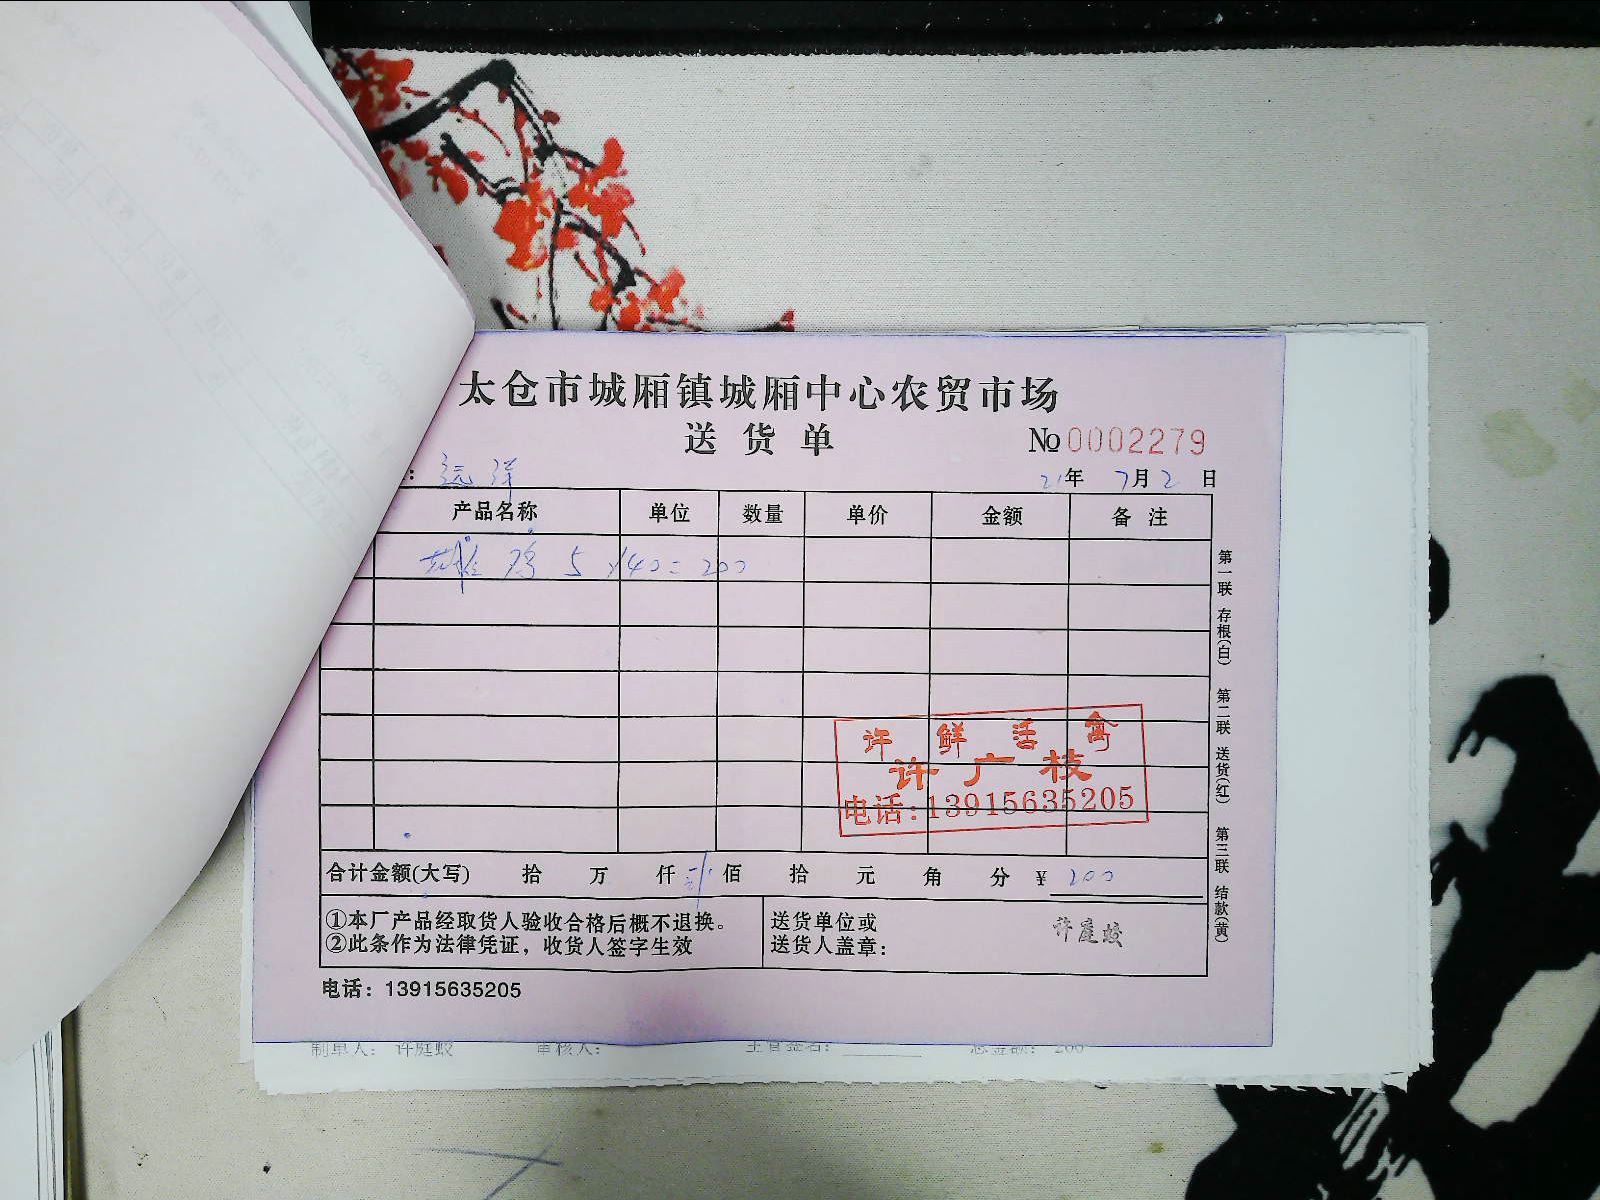 太仓市城厢镇城厢中心农贸市场
送货单
№0002279
: 远洋
21年 7月2日
产品名称 单位 数量 单价 金额 备注
雄鸡 5 ×40=200
第一联 存根(白) 第二联 送货(红) 第三联 结款(黄)
许鲜活禽
许广枝
电话:13915635205
合计金额(大写) 拾 万 仟 贰佰 拾 元 角 分 ¥ 200
①本厂产品经取货人验收合格后概不退换。
②此条作为法律凭证，收货人签字生效
送货单位或
送货人盖章:
许庭蛟
电话: 13915635205
制单人: 许庭蛟 审核人: 主管签名: 总金额: 200